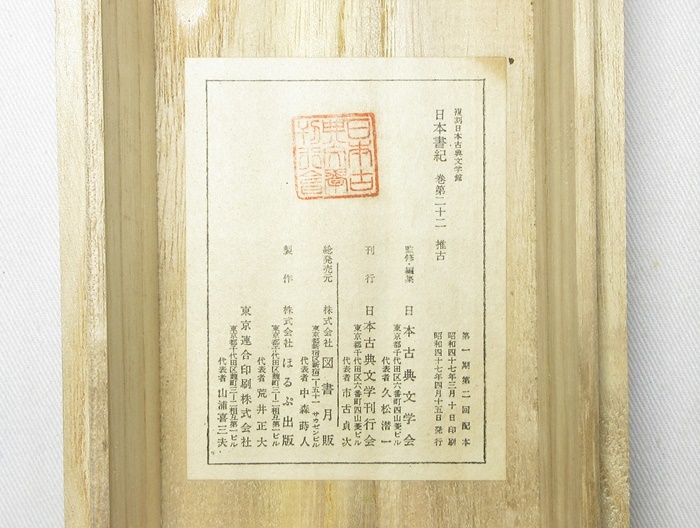 複刻日本古典文学館
日本書紀 巻第二十二 推古
第一期第二回配本
昭和四十七年三月十日印刷
昭和四十七年四月十五日発行
監修・編集 日本古典文学会
東京都千代田区六番町四山菱ビル
代表者 久松潜一
刊行 日本古典文学刊行会
東京都千代田区六番町四山菱ビル
代表者 市古貞次
総発売元 株式会社 図書月販
東京都新宿区新宿二ー五十一 サカゼンビル
代表者 中森蒔人
製作 株式会社 ほるぷ出版
東京都千代田区麹町三ー二相互第一ビル
代表者 荒井正大
東京連合印刷株式会社
東京都千代田区麹町三ー二相互第一ビル
代表者 山浦喜三夫
日本古
典文學
刊行會